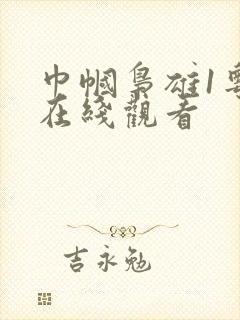 巾帼梟雄1粵
在綫觀看
吉永勉